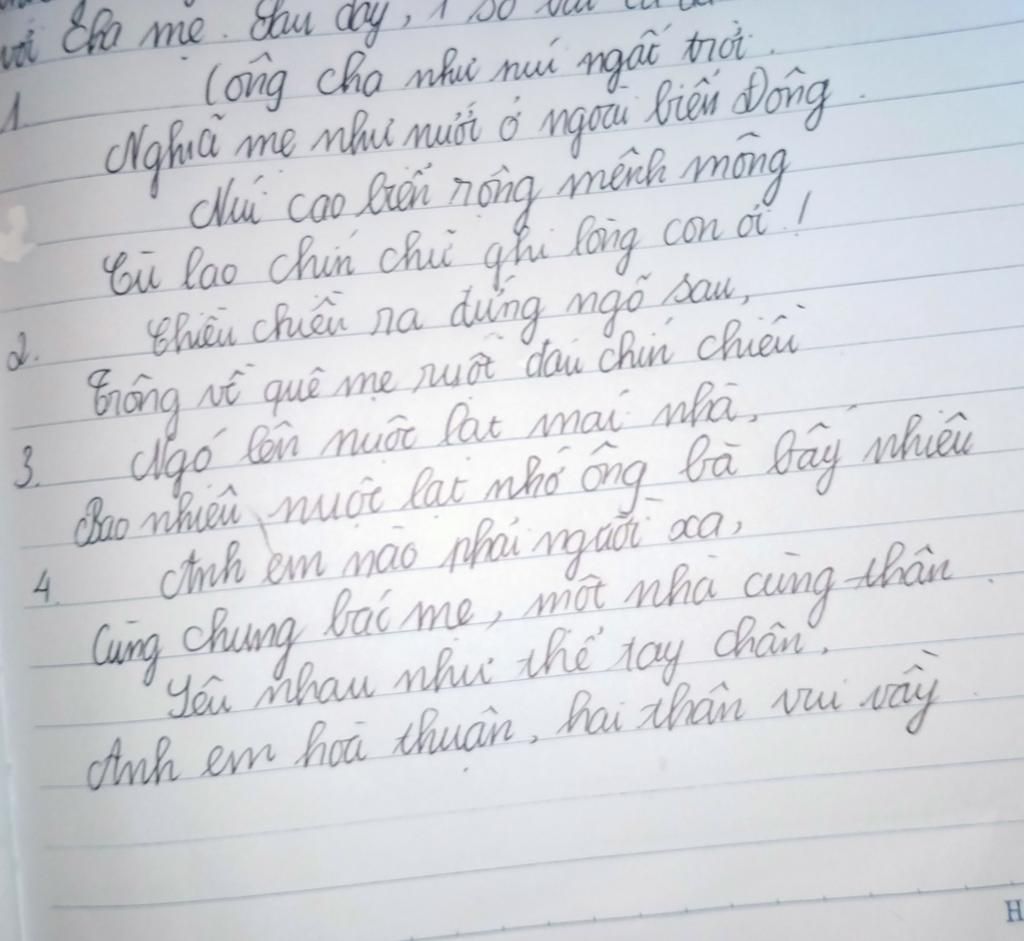 với cha mẹ. Sau đây, 1 số
1. Công cha như núi ngất trời.
Nghĩa mẹ như nước ở ngoài biển Đông.
Núi cao biển rộng mênh mông
Cù lao chín chữ ghi lòng con ơi!
2. Chiều chiều ra đứng ngõ sau,
Trông về quê mẹ ruột đau chín chiều
3. Ngó lên nuộc lạt mái nhà,
Bao nhiêu nuộc lạt nhớ ông bà bấy nhiêu
4. Anh em nào phải người xa,
Cùng chung bác mẹ, một nhà cùng thân.
Yêu nhau như thể tay chân,
Anh em hoà thuận, hai thân vui vầy.
H